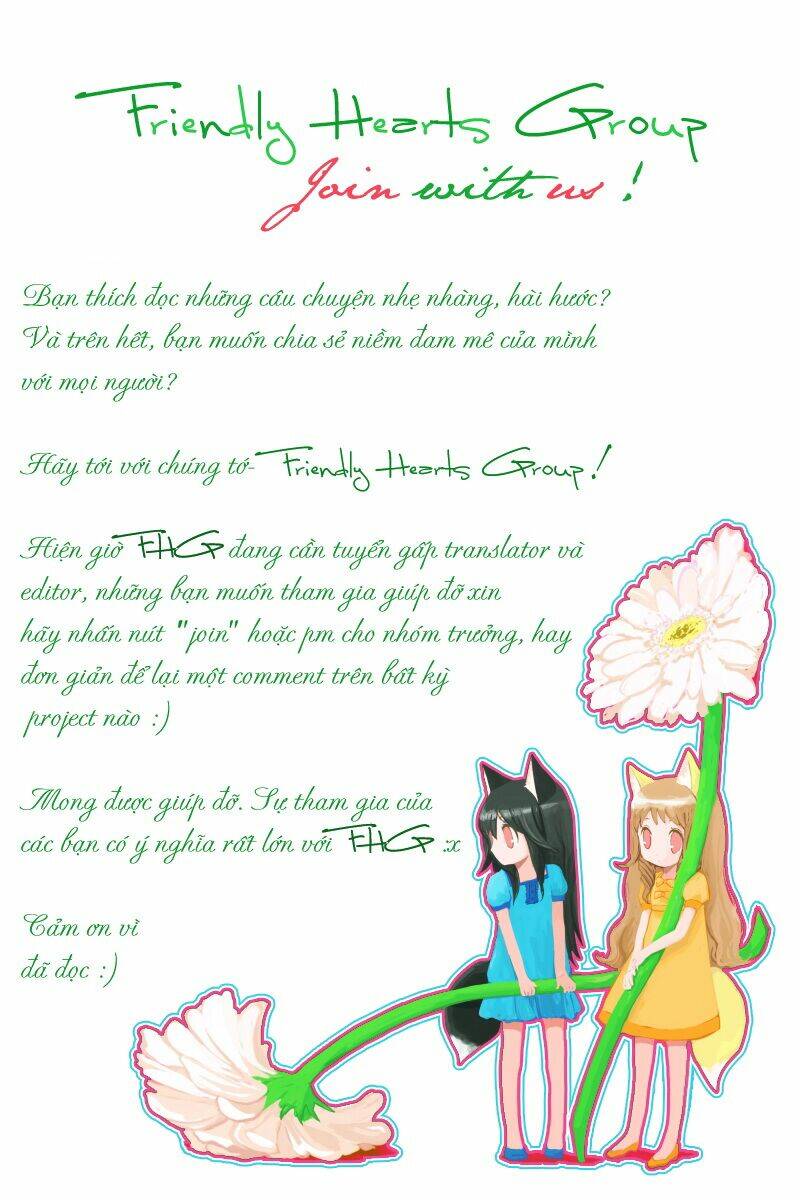 Friendly Hearts Group
Join with us !
Bạn thích đọc những câu chuyện nhẹ nhàng, hài hước?
Và trên hết, bạn muốn chia sẻ niềm đam mê của mình
với mọi người?
Hãy tới với chúng tớ- Friendly Hearts Group!
Hiện giờ FHG đang cần tuyển gấp translator và
editor, những bạn muốn tham gia giúp đỡ xin
hãy nhấn nút "join" hoặc pm cho nhóm trưởng, hay
đơn giản để lại một comment trên bất kỳ
project nào :)
Mong được giúp đỡ. Sự tham gia của
các bạn có ý nghĩa rất lớn với FHG :x
Cảm ơn vì
đã đọc :)